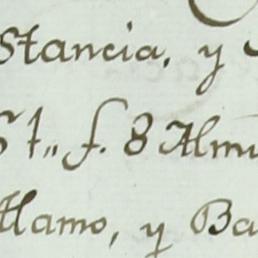 Stancia, y
St,, f. 8 Alm
Alamo, y Ba